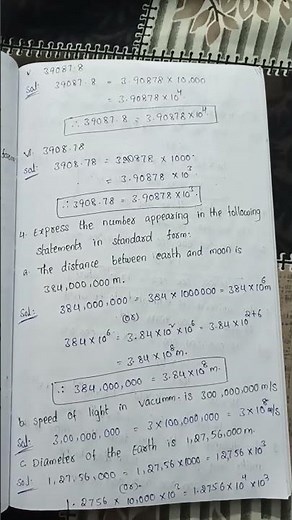 v. 39087.8
Sol: 39087.8 = 3.90878 × 10,000
= 3.90878 × 10⁴
∴ 39087.8 = 3.90878×10⁴.
vi. 3908.78
Sol: 3908.78 = 3.90878 × 1000
= 3.90878 × 10³
∴ 3908.78 = 3.90878×10³.
4. Express the number appearing in the following
statements in standard form.
a. The distance between earth and moon is
384,000,000 m.
Sol: 384,000,000 = 384 × 1000000 = 384×10⁶m
(OR)
384×10⁶ = 3.84×10²×10⁶ = 3.84×10²⁺⁶
= 3.84×10⁸m.
∴ 384,000,000 = 3.84×10⁸m.
b. Speed of light in vacumm is 300,000,000 m/s
Sol: 3,00,000,000 = 3×100,000,000 = 3×10⁸m/s
c. Diameter of the Earth is 1,27,56,000m.
Sol: 1,27,56,000 = 1,27,56×1000 = 12756×10³
(OR)
1.2756 × 10,000×10³ = 1.2756×10⁴×10³